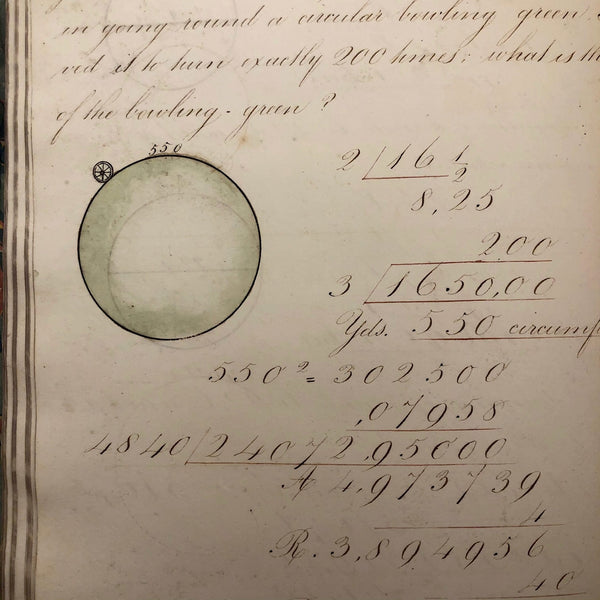 in going round a circular bowling green
ved it to turn exactly 200 times: what is th
of the bowling-green?
550
2 / 16 1/2
8,25
200
3 / 1650,00
Yds. 550 circumf
550² = 302500
,07958
4840 / 24072,95000
A 4,973739
4
R. 3,894956
40